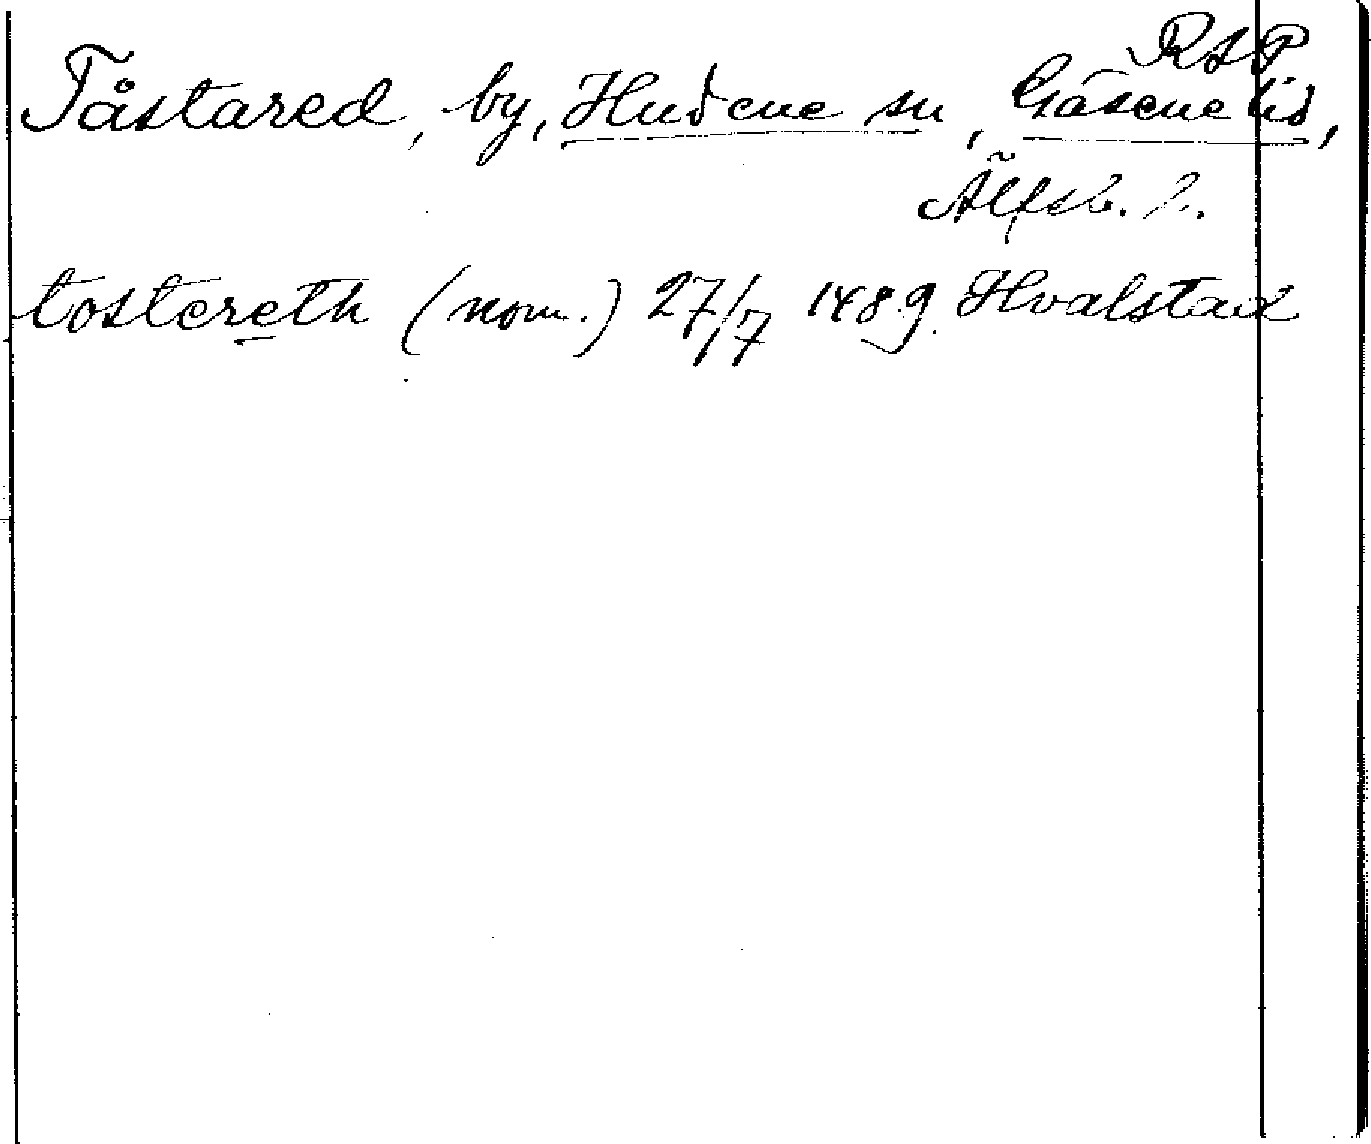 RAP
Tåstared, by, Hudene sn, Gäsene hd,
Älfsb. l.
tostereth (nom.) 27/7 1489. Hvalstad